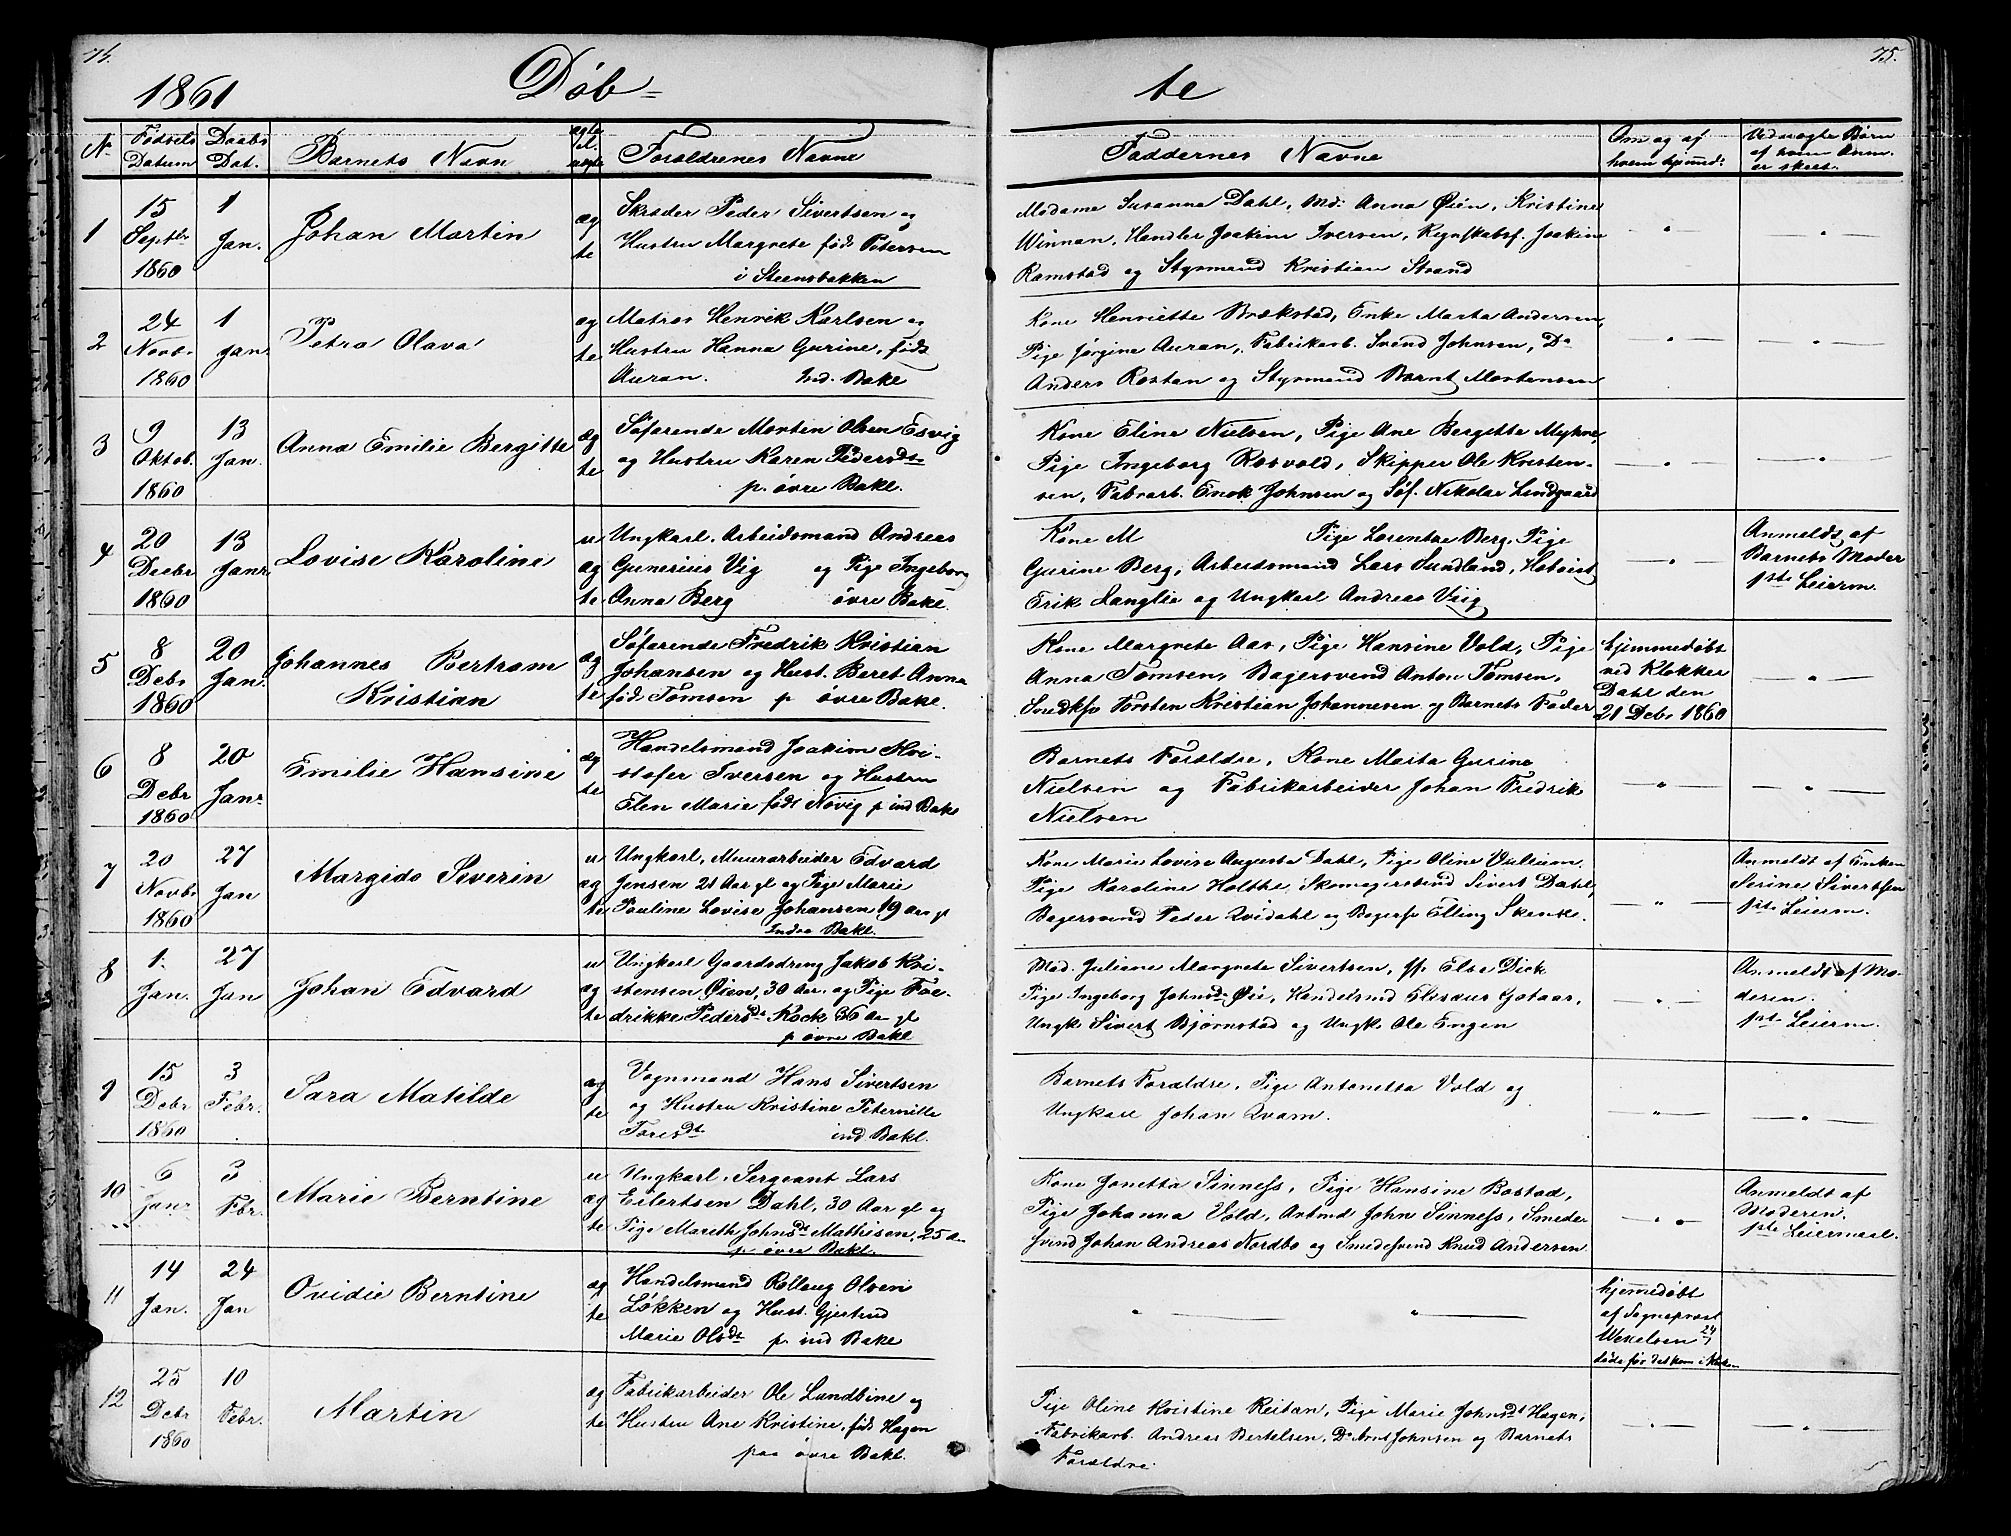 74.
1861 Døb=
No
Fødsels Datum
Daabs Dat.
Barnets Navn
ægte el. uægte
Forældrenes Navne
1
15 Septbr 1860
1 Jan.
Johan Martin
ægte
Skræder Peder Sivertsen og
Hustru Margrete født Petersen
i Steensbakken
2
24 Novbr 1860
1 Janr
Petra Olava
ægte
Matros Henrik Karlsen og
Hustru Hanna Gurine, født
Auran. Ind. Bakl
3
9 Oktob. 1860
13 Jan.
Anna Emilie Bergitte
ægte
Søfarende Morten Olsen Esvig
og Hustru Karen Pedersdt
p. øvre Bakl.
4
20 Decbr 1860
13 Janr
Lovise Karoline
uægte
Ungkarl. Arbeidsmand Andreas
Gunerius Vig og Pige Ingeborg
Anna Berg øvre Bakl.
5
8 Debr 1860
20 Jan.
Johannes Bertram
Kristian
ægte
Søfarende Fredrik Kristian
Johansen og Hust. Beret Anna
fød. Tomsen p øvre Bakl.
6
8 Debr 1860
20 Janr
Emilie Hansine
ægte
Handelsmand Joakim Kri-
stofer Iversen og Hustru
Elen Marie født Nøvig p ind Bakl
7
20 Novbr 1860
27 Jan
Margido Severin
uægte
Ungkarl, Muurarbeider Edvard
Jensen 21 Aar gl og Pige Marie
Pauline Lovise Johansen 19 Aar gl
Indre Bakl.
8
1. Jan.
27 Jan
Johan Edvard
uægte
Ungkarl Gaardsdreng Jakob Kri-
stensen Øien, 30 Aar. og Pige Fre-
drikke Pedersdt Kock 36 Aar gl
p øvre Bakl
9
15 Debr 1860
3 Febr.
Sara Matilde
ægte
Vognmand Hans Sivertsen
og Hustru Kristine Peternille
Toresdt ind Bakl.
10
6 Janr
3 Fbr.
Marie Berntine
uægte
Ungkarl, Sergeant Lars
Eilertsen Dahl, 30 Aar gl og
Pige Mareth Johnsdt Mathisen, 25 A
p øvre Bakl.
11
14 Jan.
24 Jan
Ovidie Berntine
ægte
Handelsmand Rollaug Olsen
Løkken og Hust. Gjertrud
Marie Olsdt p. ind Bakl
12
25 Debr 1860
10 Febr.
Martin
ægte
Fabrikarbeider Ole Lundbine og
Hustru Ane Kristine, fød. Hagen
paa øvre Bakl.
75.
te
Faddernes Navne
Om og af hvem hjemmed:
Ved uægte Børn af hvem Anm. er skeet.
Madame Susanna Dahl, Md. Anna Øien, Kristine
Winnan, Handler Joakim Iversen, Regnskabsf. Joakim
Ramstad og Styrmand Kristian Strand
Kone Henriette Brækstad, Enke Marta Andersen,
Pige Jørgine Auran, Fabrikarb. Svend Johnsen, Do
Anders Rostan og Styrmand Bernt Mortensen
Kone Eline Nielsen, Pige Ane Bergitte Myhre,
Pige Ingeborg Rosvold, Skipper Ole Kristen-
sen, Fabrarb. Enok Johnsen og Søf. Nikolai Lundgaard
Kone M Pige Lorentze Berg, Pige
Gurine Berg, Arbeidsmand Lars Sundland, Hoboist
Erik Langlie og Ungkarl Andreas Viig
Anmeldt af
Barnets Moder
1ste Leierm.
Kone Margrete Aas, Pige Hansine Vold, Pige
Anna Tomsen, Bagersvend Anton Tomsen,
Snedksv Torsten Kristian Johannesen og Barnets Fader
hjemmedøbt
ved Klokker
Dahl den
21 Debr 1860
Barnets Forældre, Kone Marta Gurine
Nielsen og Fabrikarbeider Johan Fredrik
Nielsen
Kone Marie Lovise Augusta Dahl, Pige Oline Vullum
Pige Karoline Holthe, Skomagersvend Sivert Dahl,
Bagersvend Peder Qvidahl og Bagersv Elling Skenke.
Anmeldt af Enken
Serine Sivertsen
1ste Leierm.
Mad. Juliane Margrete Sivertsen, Jf. Else Dick
Pige Ingeborg Johnsdt Øie, Handelsmd Elisæus Gotaas,
Ungk. Sivert Bjørnstad og Ungk. Ole Engen
Anmeldt af Mo-
deren.
1ste Leierm.
Barnets Forældre, Pige Antonetta Vold og
Ungkarl Johan Qvam.
Kone Jonetta Sinness, Pige Hansine Bostad,
Pige Johanna Vold, Arbmd John Sinness, Smeder
svend Johan Andreas Nordbo og Smedesvend Knud Andersen
Anmeldt af
Moderen.
1ste Leiermaal.
hjemedøbt
af Sogneprest
Wexelsen 24/1
døde før det kom i Kirk
Pige Oline Kristine Reitan, Pige Marie Johnsdt Hagen,
Fabrikarb. Andreas Bertelsen, Do Arnt Johnsen og Barnets
Forældre.